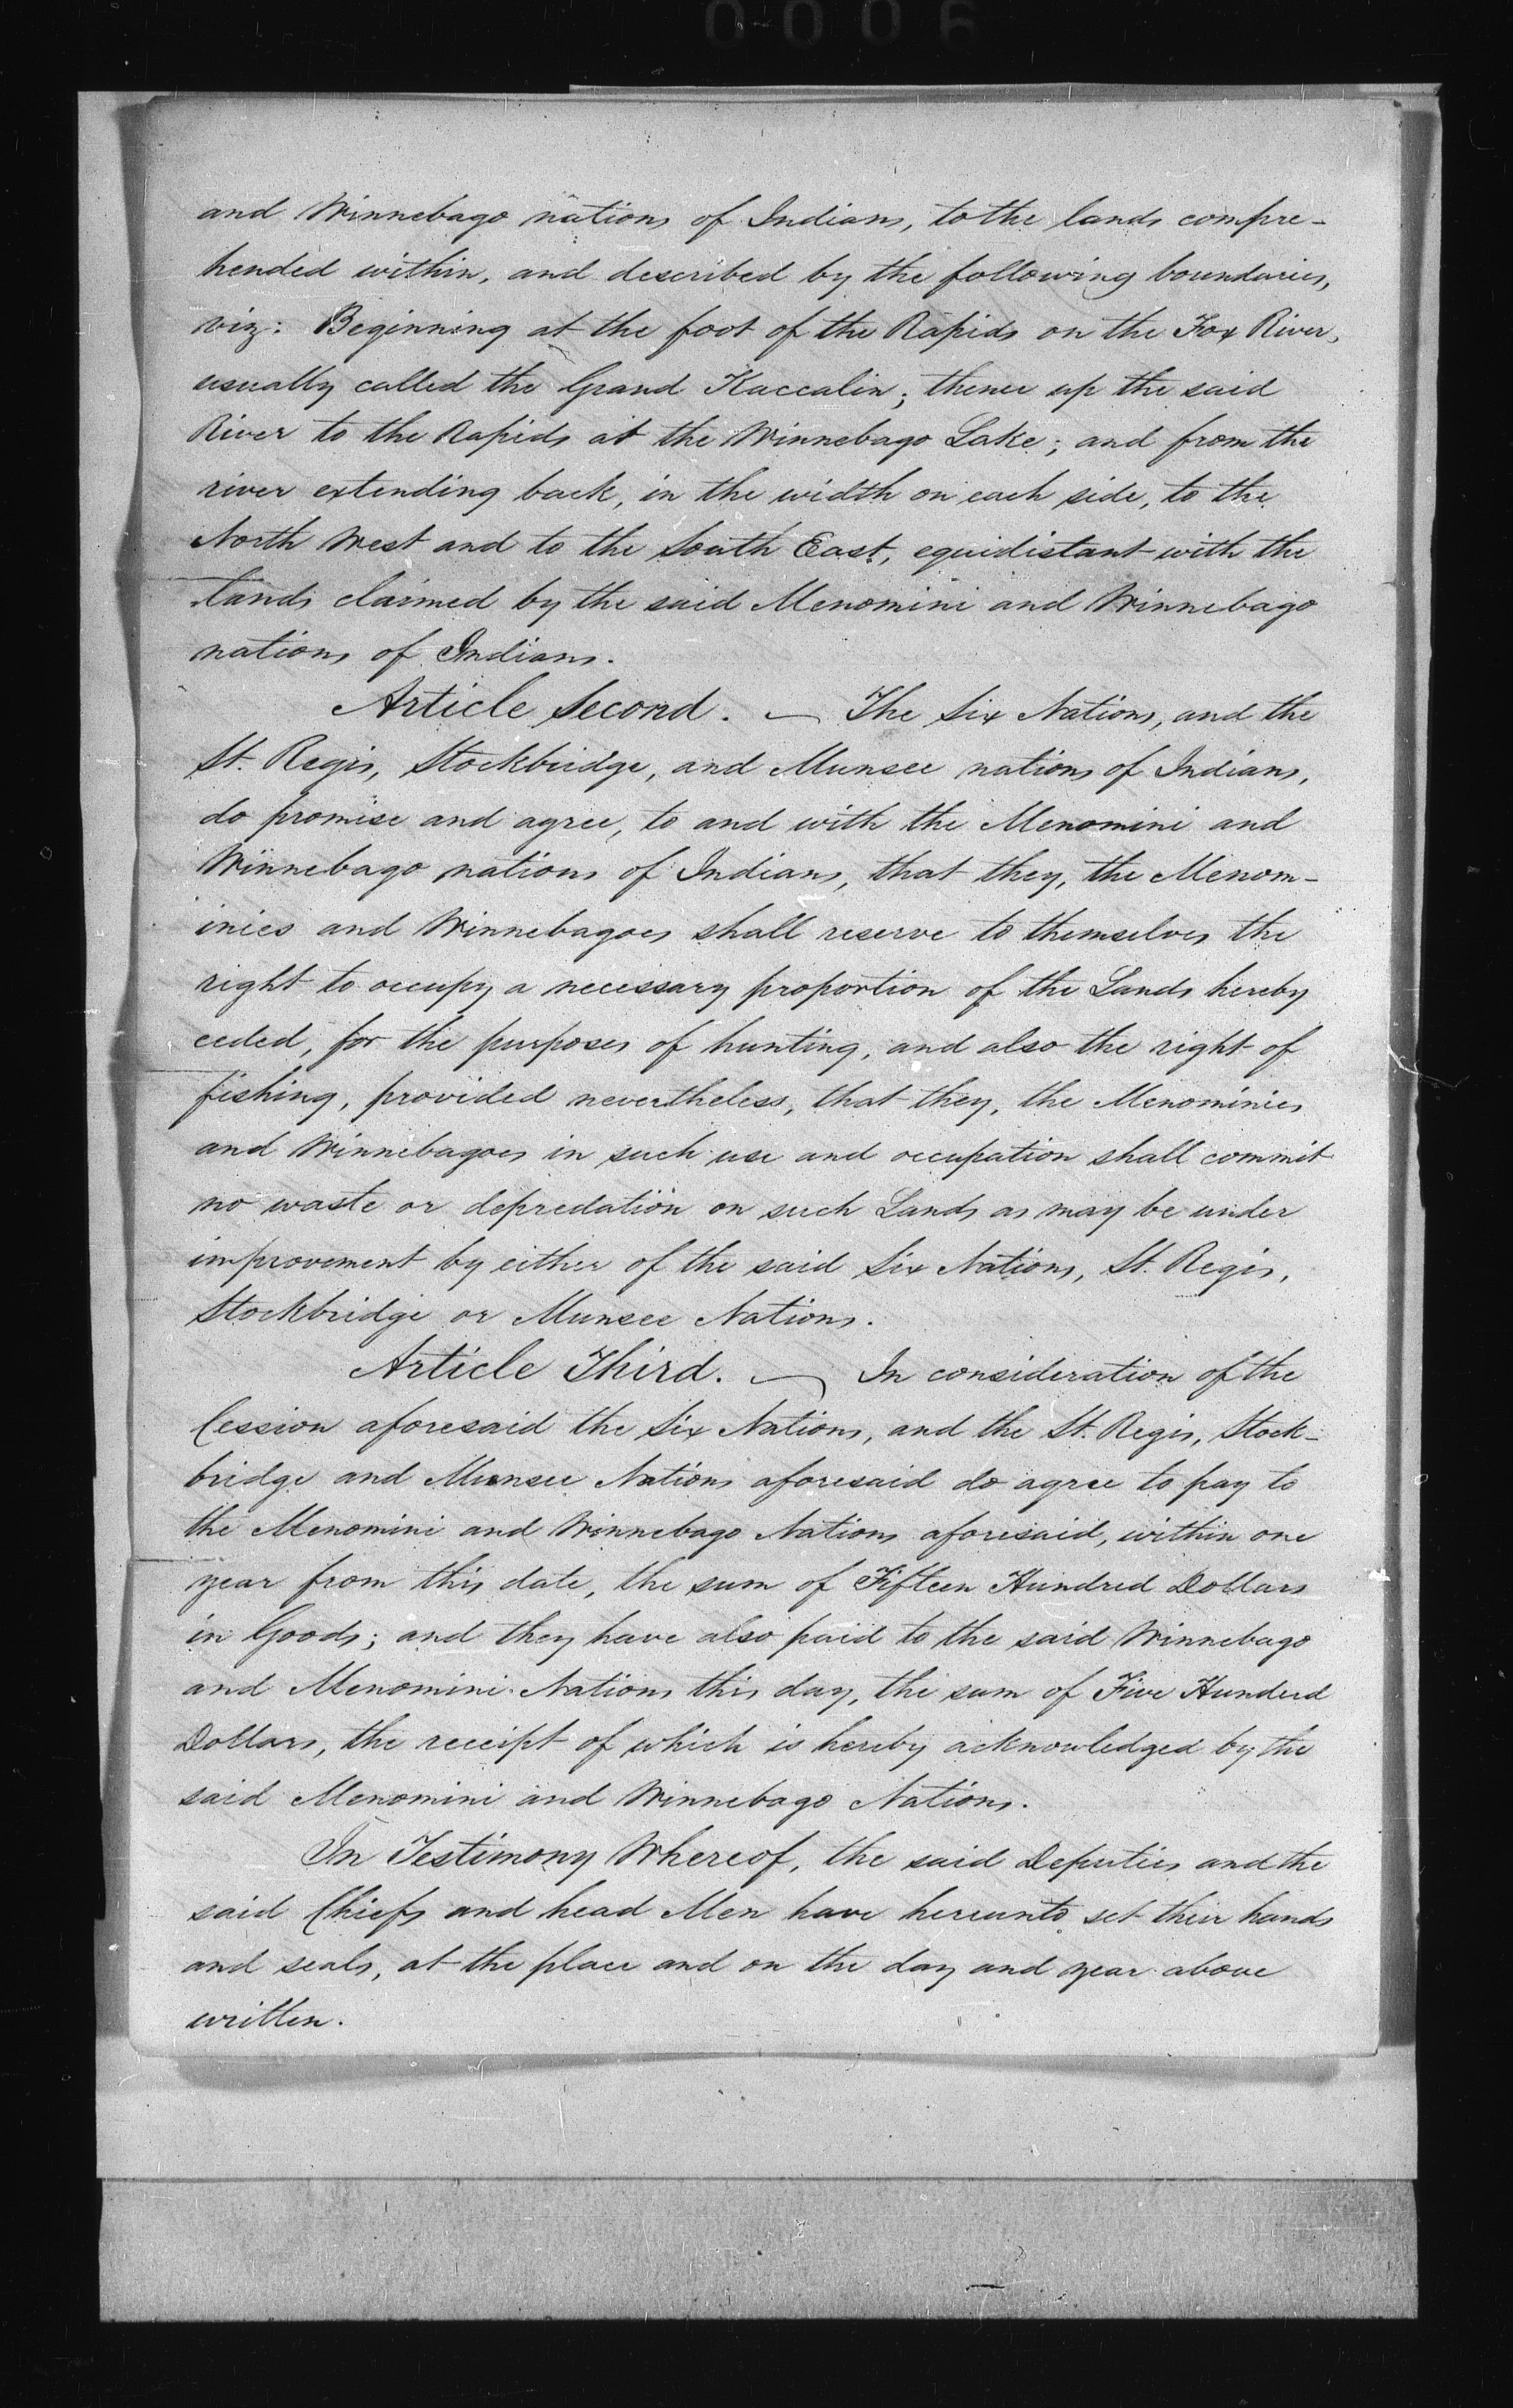 0006
and Winnebago nations of Indians, to the lands compre-
hended within, and described by the following boundaries,
viz: Beginning at the foot of the Rapids on the Fox River,
usually called the Grand Kaccalin; thence up the said
River to the Rapids at the Winnebago Lake; and from the
river extending back, in the width on each side, to the
North West and to the South East, equidistant with the
lands claimed by the said Menomini and Winnebago
nations of Indians.
Article Second. — The Six Nations, and the
St. Regis, Stockbridge, and Munsee nations of Indians,
do promise and agree, to and with the Menomini and
Winnebago nations of Indians, that they, the Menom-
inies and Winnebagoes shall reserve to themselves the
right to occupy a necessary proportion of the Lands hereby
ceded, for the purposes of hunting, and also the right of
fishing, provided nevertheless, that they, the Menominies
and Winnebagoes in such use and occupation shall commit
no waste or depredation on such Lands as may be under
improvement by either of the said Six Nations, St. Regis,
Stockbridge or Munsee Nations.
Article Third. — In consideration of the
Cession aforesaid the Six Nations, and the St. Regis, Stock-
bridge and Munsee Nations aforesaid do agree to pay to
the Menomini and Winnebago Nations aforesaid, within one
year from this date, the sum of Fifteen Hundred Dollars
in Goods; and they have also paid to the said Winnebago
and Menomini Nations this day, the sum of Five Hunderd
Dollars, the receipt of which is hereby acknowledged by the
said Menomini and Winnebago Nations.
In Testimony Whereof, the said Deputies and the
said Chiefs and head Men have hereunto set their hands
and seals, at the place and on the day and year above
written.